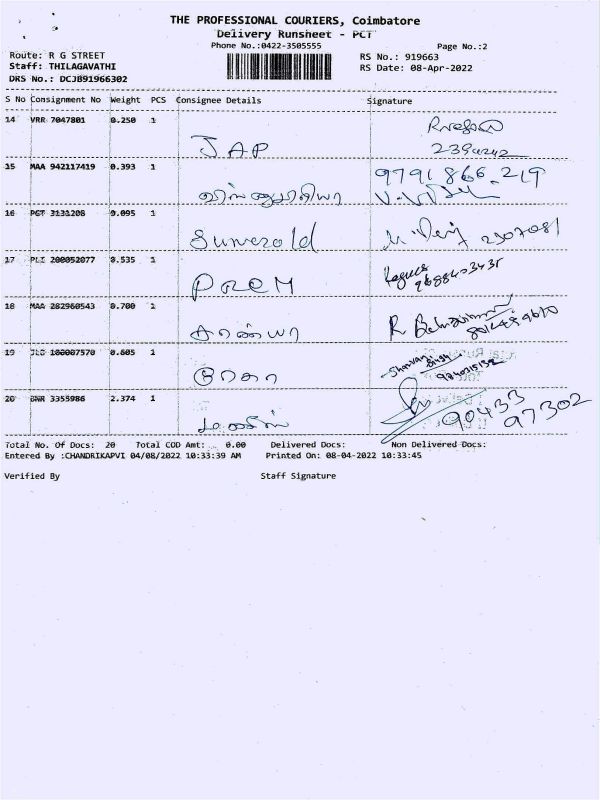 THE PROFESSIONAL COURIERS, Coimbatore
Delivery Runsheet - PCT
Phone No.:0422-3505555
Page No.:2
Route: R G STREET
RS No.: 919663
Staff: THILAGAVATHI
RS Date: 08-Apr-2022
DRS No.: DCJB91966302
S No Consignment No Weight PCS Consignee Details Signature
14 VRR 7047801 0.250 1
JAP
2394242
15 MAA 942117419 0.393 1
9791866219
16 PGT 3131208 0.095 1
Sumerold
2307081
17 PLI 200052077 0.535 1
PREM
9688403431
18 MAA 282960543 0.700 1
சரண்யா
R
19 100007570 0.605 1
ரேகா
20 BNR 3355986 2.374 1
90433
97302
Total No. Of Docs: 20 Total COD Amt: 0.00 Delivered Docs: Non Delivered Docs:
Entered By :CHANDRIKAPVI 04/08/2022 10:33:39 AM Printed On: 08-04-2022 10:33:45
Verified By Staff Signature